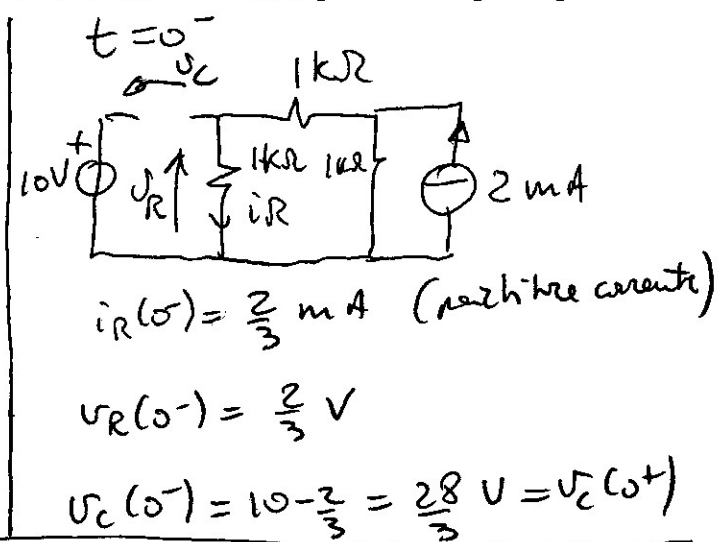 t = 0⁻
v_C
1kΩ
+
10V
v_R
1kΩ
i_R
1kΩ
2 mA
i_R(0⁻) = 2/3 mA (partitore corrente)
v_R(0⁻) = 2/3 V
v_C(0⁻) = 10 - 2/3 = 28/3 V = v_C(0⁺)